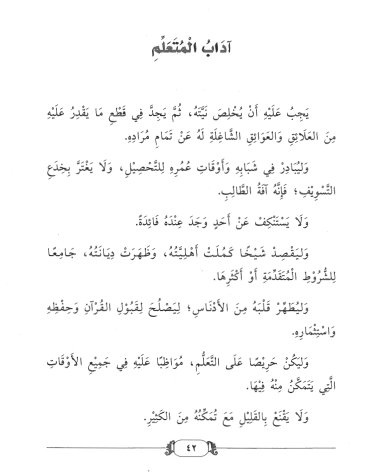 آدَابُ الْمُتَعَلِّمِ
يَجِبُ عَلَيْهِ أَنْ يُخْلِصَ نِيَّتَهُ، ثُمَّ يَجِدَّ فِي قَطْعِ مَا يَقْدِرُ عَلَيْهِ
مِنَ العَلَائِقِ وَالعَوَائِقِ الشَّاغِلَةِ لَهُ عَنْ تَمَامِ مُرَادِهِ.
وَلْيُبَادِرْ فِي شَبَابِهِ وَأَوْقَاتِ عُمُرِهِ لِلتَّحْصِيلِ، وَلَا يَغْتَرَّ بِخِدَعِ
التَّسْوِيفِ؛ فَإِنَّهُ آفَةُ الطَّالِبِ.
وَلَا يَسْتَنْكِفْ عَنْ أَحَدٍ وَجَدَ عِنْدَهُ فَائِدَةً.
وَلْيَقْصِدْ شَيْخًا كَمُلَتْ أَهْلِيَّتُهُ، وَظَهَرَتْ دِيَانَتُهُ، جَامِعًا
لِلشُّرُوطِ الْمُتَقَدِّمَةِ أَوْ أَكْثَرِهَا.
وَلْيُطَهِّرْ قَلْبَهُ مِنَ الأَدْنَاسِ؛ لِيَصْلُحَ لِقَبُولِ القُرْآنِ وَحِفْظِهِ
وَاسْتِثْمَارِهِ.
وَلْيَكُنْ حَرِيصًا عَلَى التَّعَلُّمِ، مُوَاظِبًا عَلَيْهِ فِي جَمِيعِ الأَوْقَاتِ
الَّتِي يَتَمَكَّنُ مِنْهُ فِيهَا.
وَلَا يَقْنَعْ بِالقَلِيلِ مَعَ تَمَكُّنِهِ مِنَ الكَثِيرِ.
٤٢